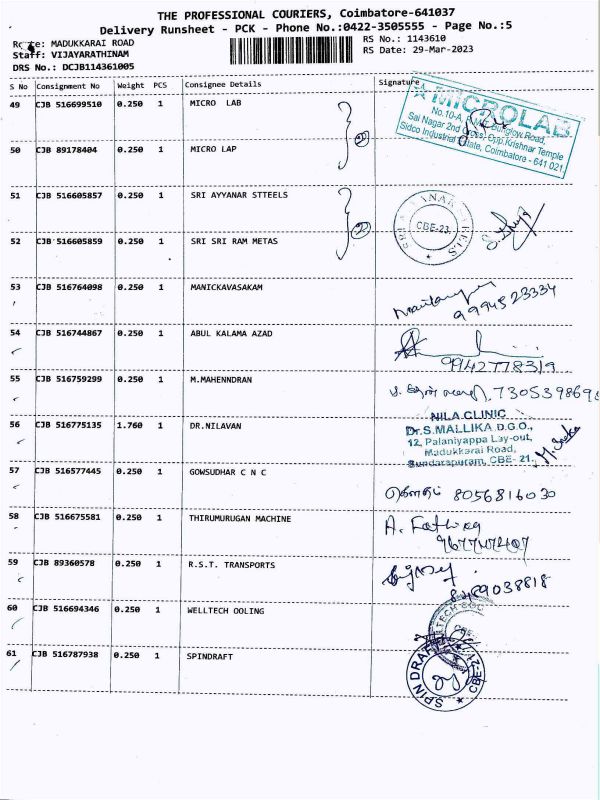 THE PROFESSIONAL COURIERS, Coimbatore-641037
Delivery Runsheet - PCK - Phone No.:0422-3505555 - Page No.:5
Route: MADUKKARAI ROAD
RS No.: 1143610
Staff: VIJAYARATHINAM
RS Date: 29-Mar-2023
DRS No.: DCJB114361005
S No Consignment No Weight PCS Consignee Details Signature
49 CJB 516699510 0.250 1 MICRO LAB
MICROLAB
No.10-A,
Sai Nagar 2nd Cross, Opp.Krishnar Temple
Sidco Industrial Estate, Coimbatore - 641 021
50 CJB 89178404 0.250 1 MICRO LAP
51 CJB 516605857 0.250 1 SRI AYYANAR STTEELS
CBE-23.
52 CJB 516605859 0.250 1 SRI SRI RAM METAS
53 CJB 516764098 0.250 1 MANICKAVASAKAM
9994523334
54 CJB 516744867 0.250 1 ABUL KALAMA AZAD
9942778319
55 CJB 516759299 0.250 1 M.MAHENNDRAN
730539869
56 CJB 516775135 1.760 1 DR.NILAVAN
NILA CLINIC
Dr.S.MALLIKA D.G.O.,
12, Palaniyappa Lay-out,
Madukkarai Road,
Sundarapuram, CBE- 21.
57 CJB 516577445 0.250 1 GOWSUDHAR C N C
8056816030
58 CJB 516675581 0.250 1 THIRUMURUGAN MACHINE
59 CJB 89360578 0.250 1 R.S.T. TRANSPORTS
60 CJB 516694346 0.250 1 WELLTECH OOLING
61 CJB 516787938 0.250 1 SPINDRAFT
SPIN DRAFT
CBE-21